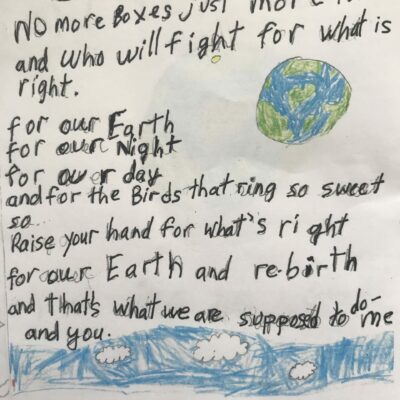 No more Boxes just more
and who will fight for what is
right.
for our Earth
for our Night
for our day
and for the Birds that ring so sweet
so...
Raise your hand for what's right
for our Earth and re-birth
and that's what we are supposed to do-
me
and you.